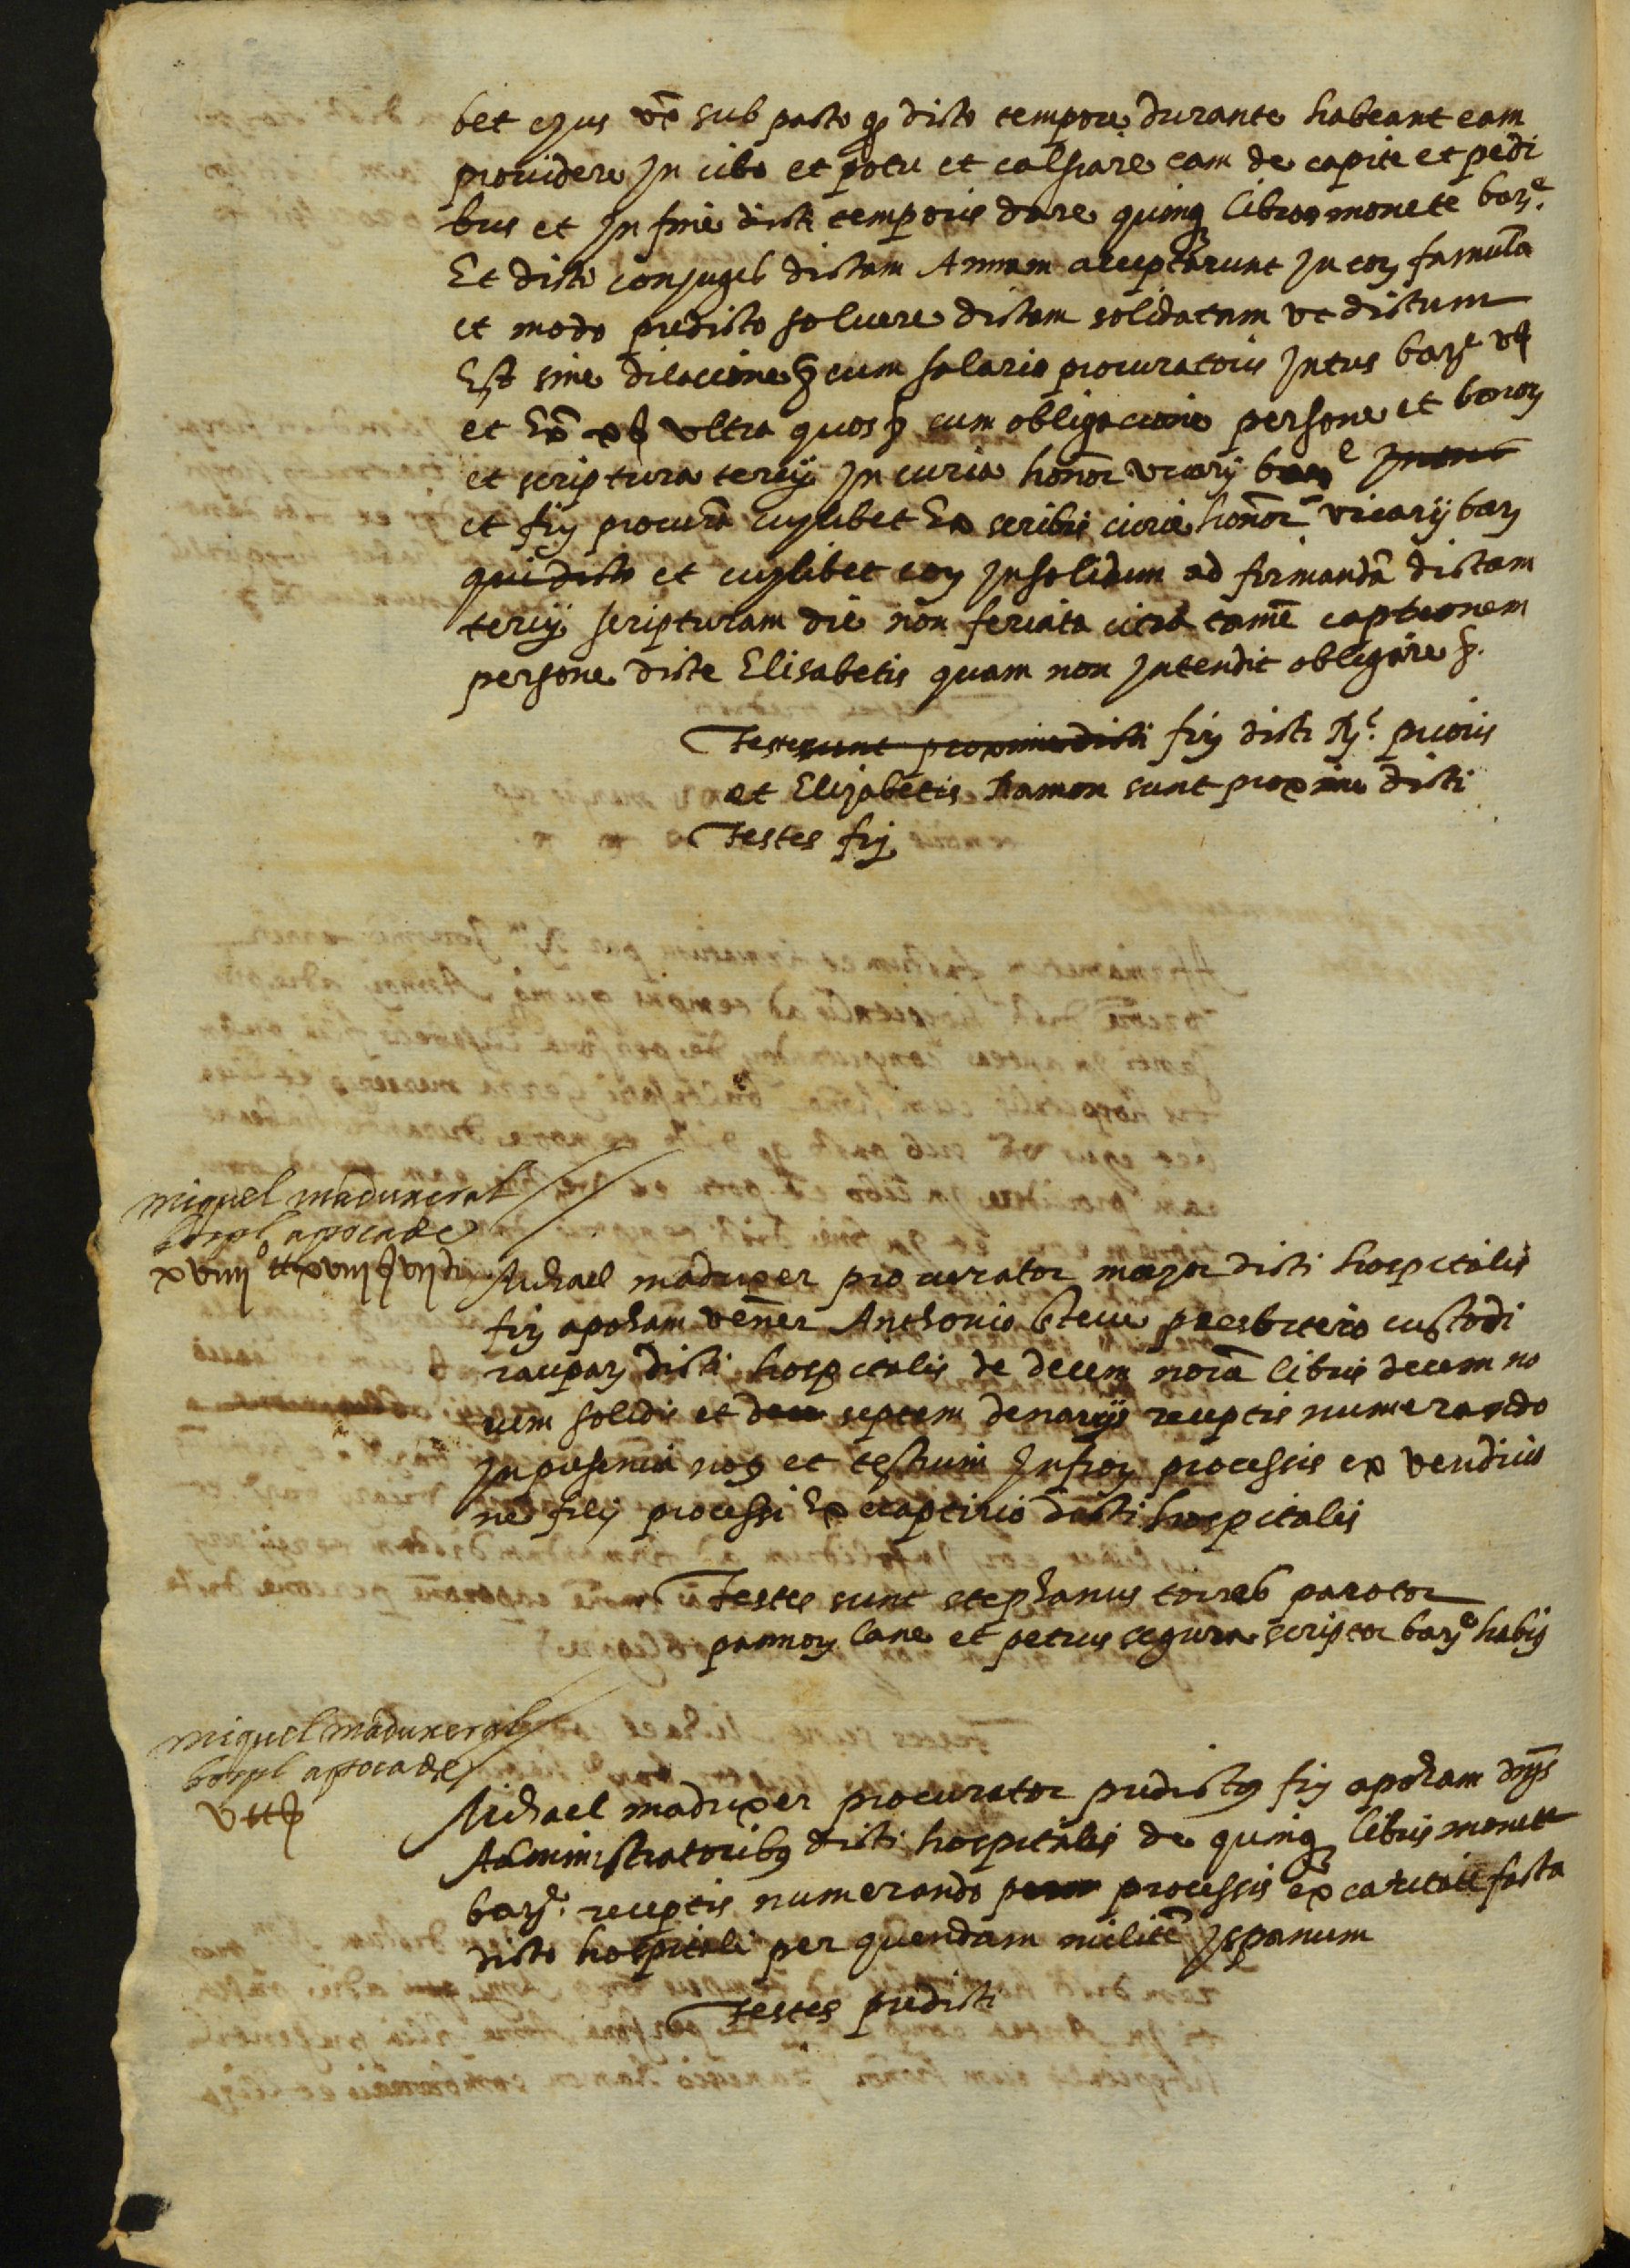 bet ejus uxº sub pacto q̃ dicto tempore durante habeant eam
providere In cibo et potu et calsiare eam de capite et pedi
bus et In fine dicti temporis dare quinq libras monete barᵉ.
Et dicti conjuges dictam Annam acceptarunt In eoɟ famulã
et modo predicto solvere dictam solidatam ut dictum
Est sine dilacione ꝛ cum salario procuratoris Intus barᵉ vß
et Exª xß ultra quos ꝛ cum obligacione persone et bonoɟ
et scriptura tercij In curia honor vicarij barᵉ Intus
et fiɟ procurã cuilibet Ex scribis curie honorᵉ vicarij barɟ
qui dicto et cuilibet eoɟ Insolidum ad firmandã dictam
tercij scripturam die non feriata citra tamẽ captionem
persone dicte Elisabetis quam non Intendit obligare ꝛ.
Testes sunt proxime dicti fiɟ dicti Rᵈⁱ. prioris
et Elizabetis Ramon sunt proxime dicti
Testes fiɟ
Miguel maduxer al
hospl apocade
xviiijº ttxviiijßvijdɟ
Michael maduxer procurator major dicti hospitalis
fiɟ apocham vener Anthonio steve presbitero custodi
raupaɟ dicti hospitalis de decem novẽ libris decem no
vem solidis et dece septem denarijs receptis numerando
In presentia noɟ et testium Infroɟ processis ex vendicio
ne filij processi Ex captirio dicti hospitalis
Testes sunt stephanus torres parator
pannoɟ lane et petrus segura scriptor barᵉ habiɟ
Miguel maduxer al
hospl apocade
v ttß
Michael maduxer procurator predictꝰ fiɟ apocham dnỹs
Administratoribꝰ dicti hospitalis de quinq libris monete
barᵉ. receptis numerando processis ex caritate facta
dicto hospitali per quendam militẽ Ispanum
Testes predicti